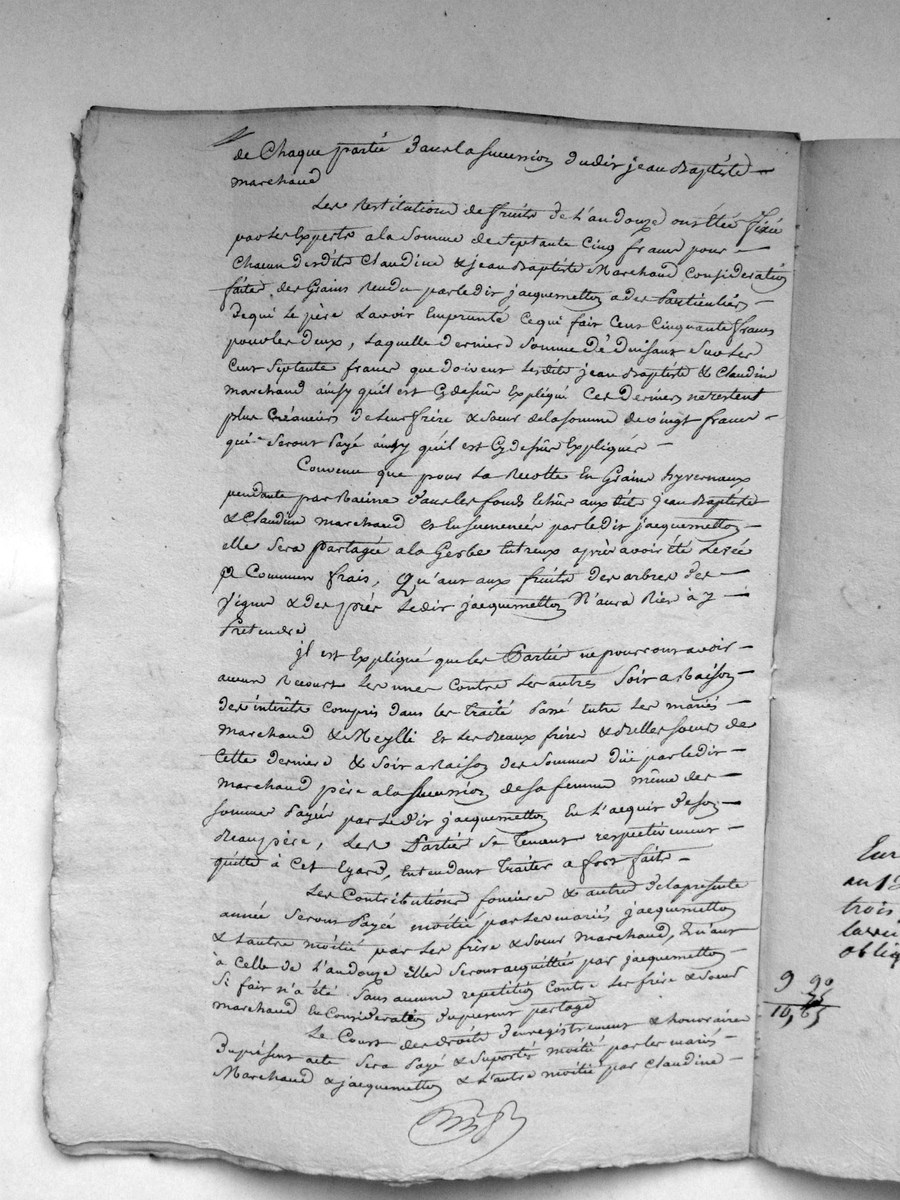 de Chaque partie dans la succession dudit jean Baptiste
marchand
Les Restitutions de fruits de L'an douze ont été fixée
par les Experts a la somme de septante Cinq francs pour
Chacun desdits Claudine & jean Baptiste Marchand Consideration
faite des Grains Rendu par ledit jacquemetton a des Particuliers
de qui le père L'avoit Emprunté Ce qui fait Cent Cinquante francs
pour les deux, Laquelle derniere Somme déduisant sur les
Cent Septante francs que doivent lesdits jean Baptiste & Claudine
marchand ainsy qu'il est Cy dessus Expliqué Ces Derniers ne restent
plus Créanciers de leur frère & sœur de la somme de vingt francs
qui Seront Payé ainsy qu'il est Cy dessus Expliqué
Convenu que pour La Recolte En Grains hyvernaux
pendante par Racine dans les fonds échus aux dits jean Baptiste
& Claudine marchand est Ensemencée par ledit jacquemetton
elle Sera partagée a la Gerbe entreux après avoir été Levée
a Commun frais, Qu'ant aux fruits des arbres des
Vignes & des près Ledit jacquemetton N'aura Rien à y
Pretendre
jl est Expliqué que les Parties ne pourront avoir
aucun Recourt Les unes Contre Les autres Soit a Raison
des intérêts Compris dans les traité Passé Entre Les mariés
Marchand & Neylli Et Les Beaux frères & Belles Sœurs de
Cette Derniere & Soit a Raison des Sommes Düe par ledit
Marchand père a la Succession de sa femme même des
Sommes Payées par Ledit jacquemetton En L'acquit de son
Beaupère, Les Parties Se Tenant respectivement
quitte à Cet Egard, Entendant Traiter a forfait
Les Contributions foncieres & autres de la presente
année Seront Payée moitié par Les mariés jacquemetton
& L'autre moitié par Les frère & Sœur Marchand, Qu'ant
à Celle de L'an douze Elle Seront acquittés par jacquemetton
Si fait n'a été Sans aucune repetition Contre Les frère & Sœur
Marchand En Consideration du present partage
Le Cout des droits D'enregistrement & honoraires
Du présent acte Sera Payé & Suportés moitié par les mariés
Marchand & jacquemetton & L'autre moitié par Claudine
Enr
an 1
trois
obliq
9 90
75
10,65